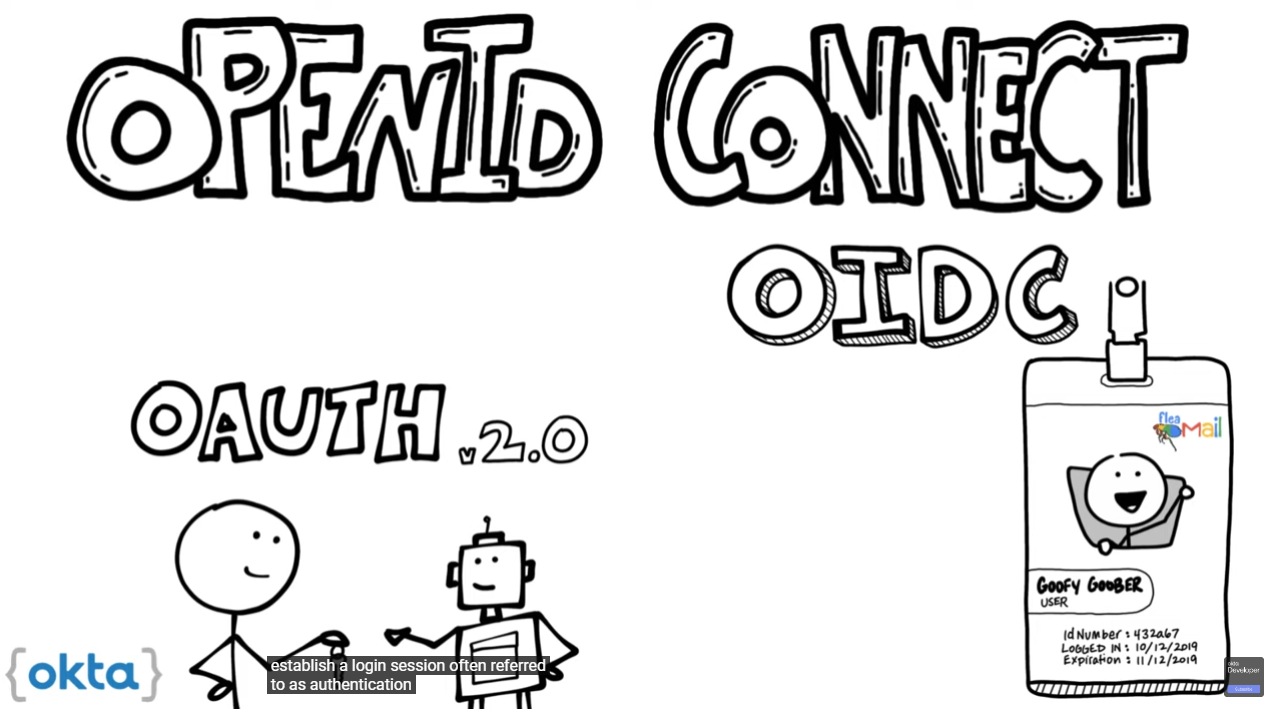 OPENID CONNECT
OIDC
OAUTH v2.0
flea
Mail
GOOFY GOOBER
USER
Id Number : 432a67
LOGGED IN : 10/12/2019
Expiration : 11/12/2019
{okta}
establish a login session often referred
to as authentication
okta
Developer